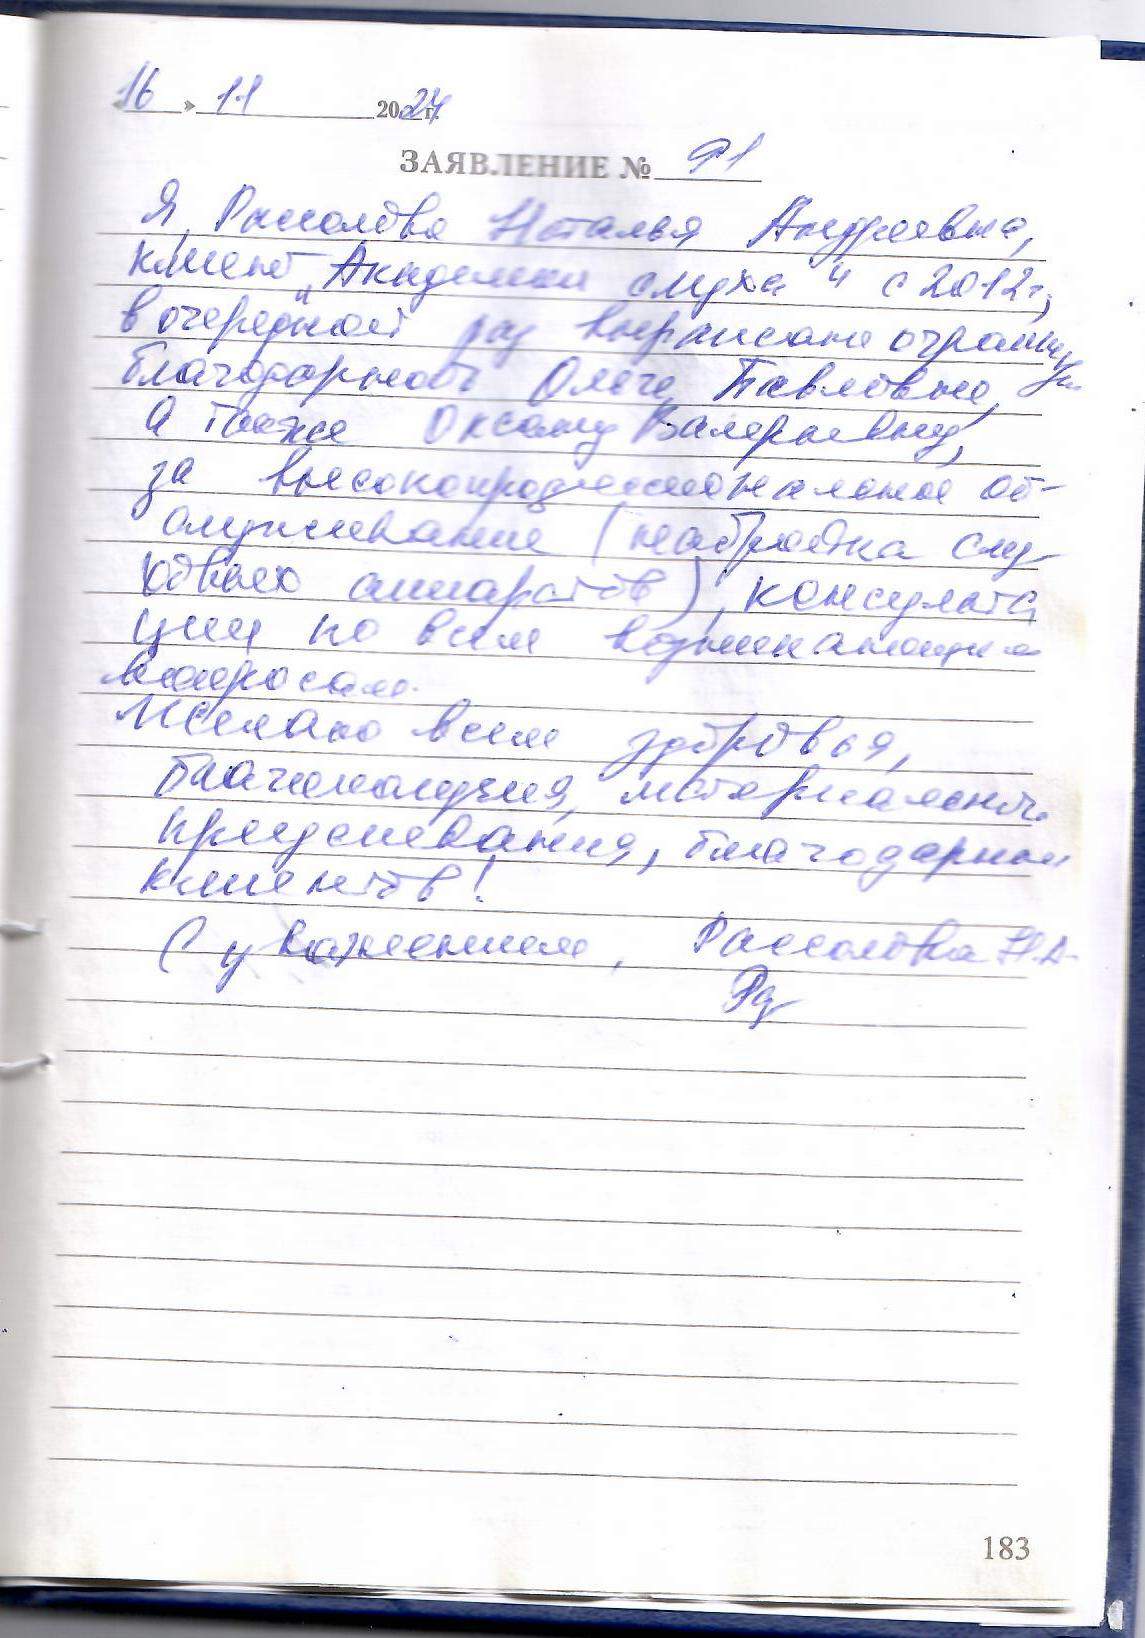 16 » 11 2024 г.
ЗАЯВЛЕНИЕ № 91
Я, Рассолова Наталья Андреевна,
клиент „Академии слуха“ с 2012г,
в очередной раз выражаю огромную
благодарность Ольге Павловне,
а также Оксану Валерьевну,
за высокопрофессиональное об-
служивание (настройка слу-
ховых аппаратов), консульта
ции по всем возникающим
вопросам.
Желаю всем здоровья,
благополучия, материальн.
преуспевания, благодарных
клиентов!
С уважением, Рассолова Н.А.
183